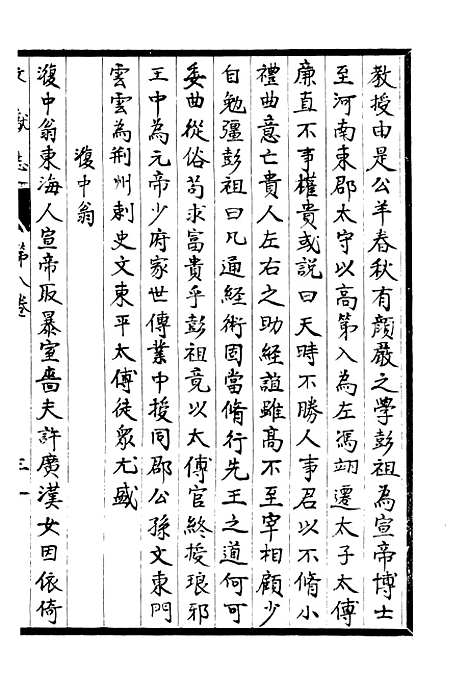 教授由是公羊春秋有顔嚴之學彭祖為宣帝博士
至河南東郡太守以高第入為左馮翊遷太子太傅
廉直不事權貴或說曰天時不勝人事君以不脩小
禮曲意亡貴人左右之助經誼雖高不至宰相願少
自勉彊彭祖曰凡通經術固當脩行先王之道何可
委曲從俗苟求富貴乎彭祖竟以太傅官終授琅邪
王中為元帝少府家世傳業中授同郡公孫文東門
雲雲為荆州刺史文東平太傅徒衆尤盛
澓中翁
澓中翁東海人宣帝取暴室嗇夫許廣漢女因依倚
文獻志
第八卷
三一